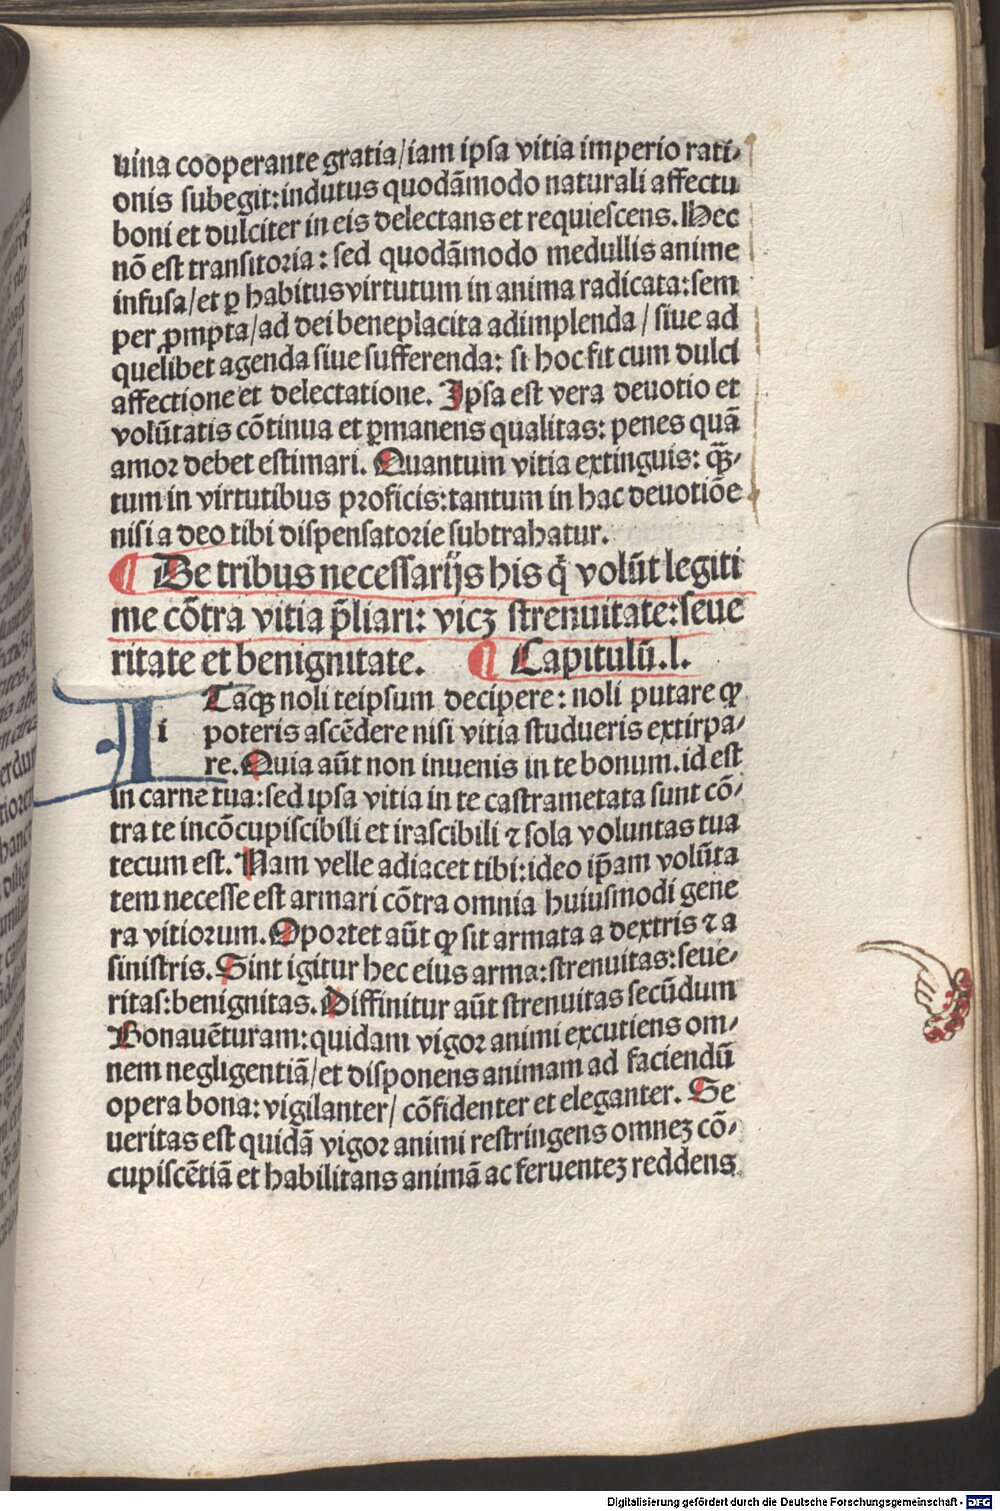 uina cooperante gratia/iam ipsa vitia imperio rati-
onis subegit:indutus quodāmodo naturali affectu
boni et dulciter in eis delectans et requiescens. Hec
nō est transitoria: sed quodāmodo medullis anime
infusa/et ꝑ habitus virtutum in anima radicata:sem
per ꝓmpta/ad dei beneplacita adimplenda/siue ad
quelibet agenda siue sufferenda: si hoc fit cum dulci
affectione et delectatione. Ipsa est vera deuotio et
volūtatis cōtinua et ꝑmanens qualitas: penes quā
amor debet estimari. Quantum vitia extinguis: qꝫ̄-
tum in virtutibus proficis:tantum in hac deuotiōe
nisi a deo tibi dispensatorie subtrahatur.
¶ De tribus necessarijs his q̇ volūt legiti
me cōtra vitia p̄liari: vicꝫ strenuitate:seue
ritate et benignitate. ¶ Capitulū.l.
I i Taqꝫ noli teipsum decipere: noli putare ꝙ
poteris ascēdere nisi vitia studueris extirpa-
re. Quia aūt non inuenis in te bonum.id est
in carne tua:sed ipsa vitia in te castrametata sunt cō-
tra te incōcupiscibili et irascibili ⁊ sola voluntas tua
tecum est. Nam velle adiacet tibi:ideo ip̄am volūta
tem necesse est armari cōtra omnia huiusmodi gene
ra vitiorum. Oportet aūt ꝙ sit armata a dextris ⁊ a
sinistris. Sint igitur hec eius arma:strenuitas:seue-
ritas:benignitas. Diffinitur aūt strenuitas secūdum
Bonauēturam:quidam vigor animi excutiens om-
nem negligentiā/et disponens animam ad faciendū
opera bona:vigilanter/ cōfidenter et eleganter. Se
ueritas est quidā vigor animi restringens omneꝫ cō-
cupiscētiā et habilitans animā ac feruenteꝫ reddens
Digitalisierung gefördert durch die Deutsche Forschungsgemeinschaft - DFG